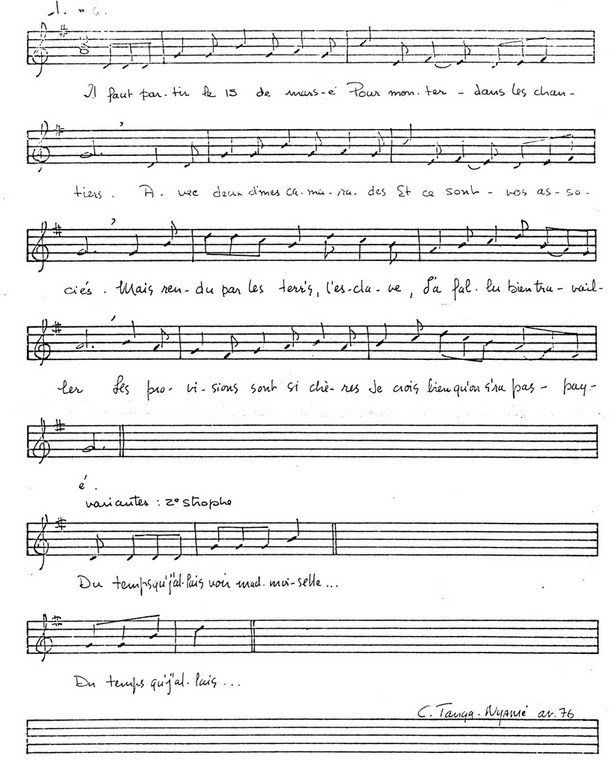 Il faut par-tir le 15 de mars-e Pour mon-ter - dans les chan-
tiers. A-vec deux d'mes ca-ma-ra-des Et ce sont - vos as-so-
ciés. Mais ren-du par les terr's, l'es-cla-ve, J'a fal-lu bien tra-vail-
ler Les pro-vi-sions sont si chè-res Je crois bien qu'on s'ra pas - pay-
é.
variantes : 2e strophe
Du temps qu'j'al-lais voir mad-moi-selle...
Du temps qu'j'al-lais...
C. Tanga-Nyamé av. 76